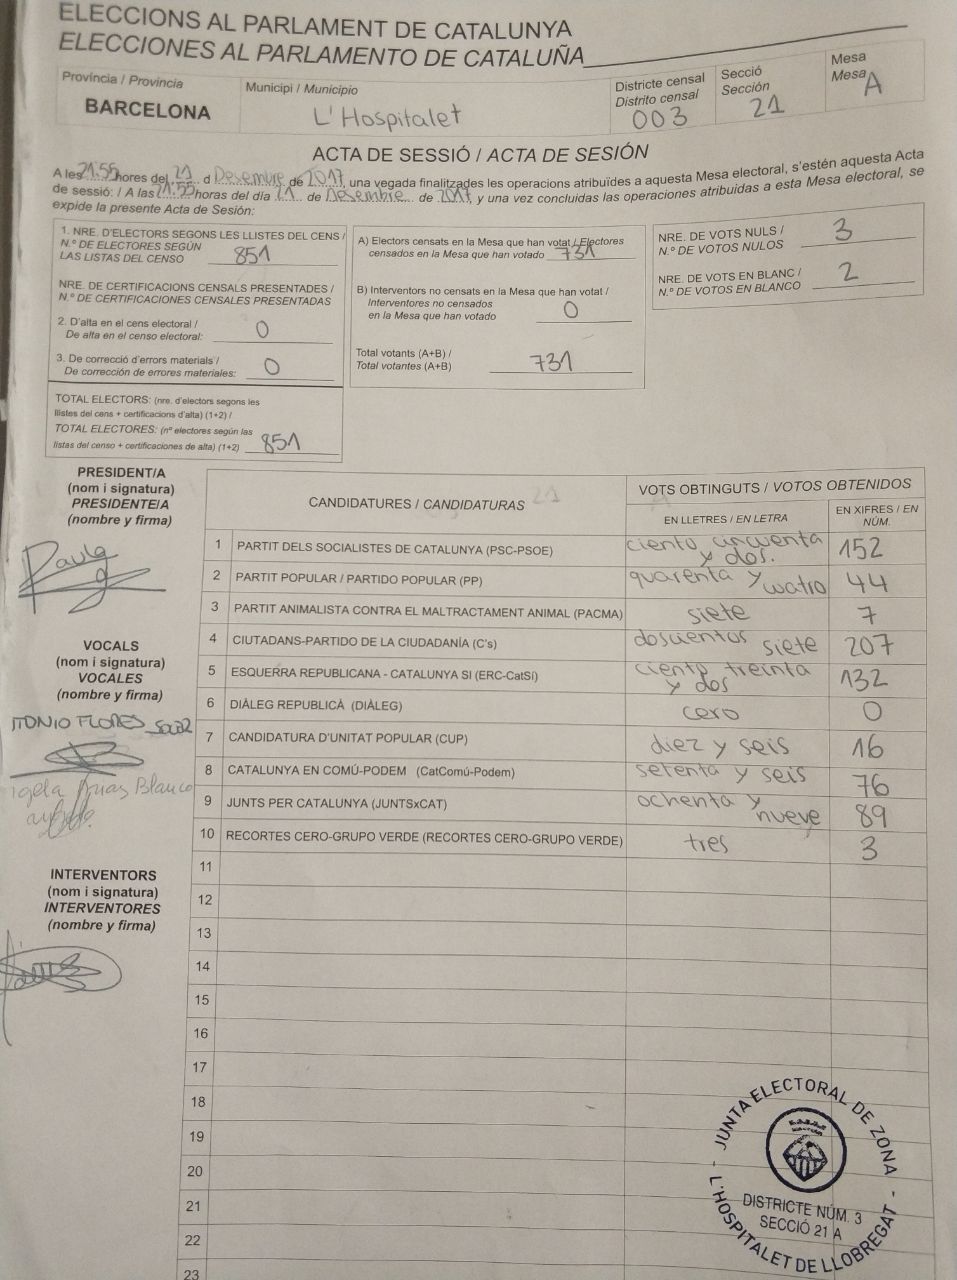 ELECCIONS AL PARLAMENT DE CATALUNYA
ELECCIONES AL PARLAMENTO DE CATALUÑA
Província / Provincia
BARCELONA
Municipi / Municipio
L'Hospitalet
Districte censal
Distrito censal
003
Secció
Sección
21
Mesa
Mesa
A
ACTA DE SESSIÓ / ACTA DE SESIÓN
A les 21:55 hores del 21 d Desembre de 2017, una vegada finalitzades les operacions atribuïdes a aquesta Mesa electoral, s'estén aquesta Acta
de sessió: / A las 21:55 horas del día 21 de Desembre de 2017, y una vez concluidas las operaciones atribuidas a esta Mesa electoral, se
expide la presente Acta de Sesión:
1. NRE. D'ELECTORS SEGONS LES LLISTES DEL CENS /
N.º DE ELECTORES SEGÚN
LAS LISTAS DEL CENSO 851
NRE. DE CERTIFICACIONS CENSALS PRESENTADES /
N.º DE CERTIFICACIONES CENSALES PRESENTADAS
2. D'alta en el cens electoral /
De alta en el censo electoral: 0
3. De correcció d'errors materials /
De corrección de errores materiales: 0
TOTAL ELECTORS: (nre. d'electors segons les
llistes del cens + certificacions d'alta) (1+2) /
TOTAL ELECTORES: (nº electores según las
listas del censo + certificaciones de alta) (1+2) 851
A) Electors censats en la Mesa que han votat / Electores
censados en la Mesa que han votado 731
B) Interventors no censats en la Mesa que han votat /
Interventores no censados
en la Mesa que han votado 0
Total votants (A+B) /
Total votantes (A+B) 731
NRE. DE VOTS NULS /
N.º DE VOTOS NULOS 3
NRE. DE VOTS EN BLANC /
N.º DE VOTOS EN BLANCO 2
PRESIDENT/A
(nom i signatura)
PRESIDENTE/A
(nombre y firma)
Paula
VOCALS
(nom i signatura)
VOCALES
(nombre y firma)
FLORES
Arias Blanco
INTERVENTORS
(nom i signatura)
INTERVENTORES
(nombre y firma)
CANDIDATURES / CANDIDATURAS
VOTS OBTINGUTS / VOTOS OBTENIDOS
EN LLETRES / EN LETRA
EN XIFRES / EN
NÚM.
1 PARTIT DELS SOCIALISTES DE CATALUNYA (PSC-PSOE) ciento cincuenta y dos. 152
2 PARTIT POPULAR / PARTIDO POPULAR (PP) quarenta y cuatro 44
3 PARTIT ANIMALISTA CONTRA EL MALTRACTAMENT ANIMAL (PACMA) siete 7
4 CIUTADANS-PARTIDO DE LA CIUDADANÍA (C's) doscientos siete 207
5 ESQUERRA REPUBLICANA - CATALUNYA SI (ERC-CatSí) ciento treinta y dos 132
6 DIÀLEG REPUBLICÀ (DIÀLEG) cero 0
7 CANDIDATURA D'UNITAT POPULAR (CUP) diez y seis 16
8 CATALUNYA EN COMÚ-PODEM (CatComú-Podem) setenta y seis 76
9 JUNTS PER CATALUNYA (JUNTSxCAT) ochenta y nueve 89
10 RECORTES CERO-GRUPO VERDE (RECORTES CERO-GRUPO VERDE) tres 3
11
12
13
14
15
16
17
18
19
20
21
22
23
JUNTA ELECTORAL DE ZONA
DISTRICTE NÚM. 3
SECCIÓ 21 A
L'HOSPITALET DE LLOBREGAT